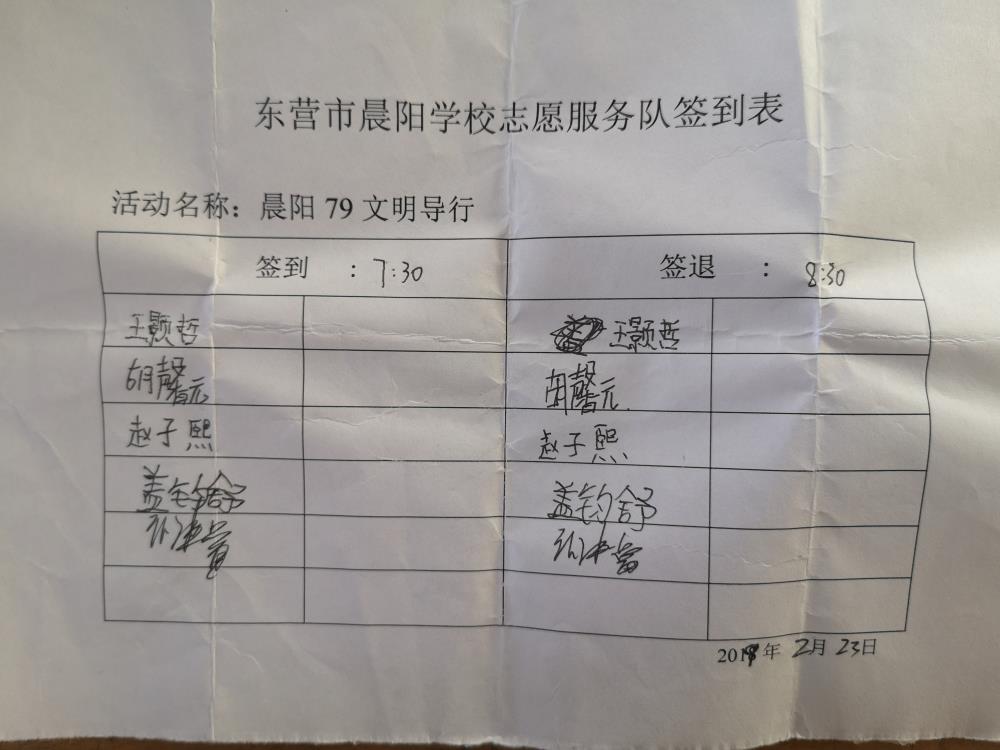 东营市晨阳学校志愿服务队签到表
活动名称：晨阳 79 文明导行
签到 ：7:30 签退 ：8:30
王颢哲 王颢哲
胡馨元 胡馨元
赵子熙 赵子熙
盖钧舒 盖钧舒
年 2月 23日